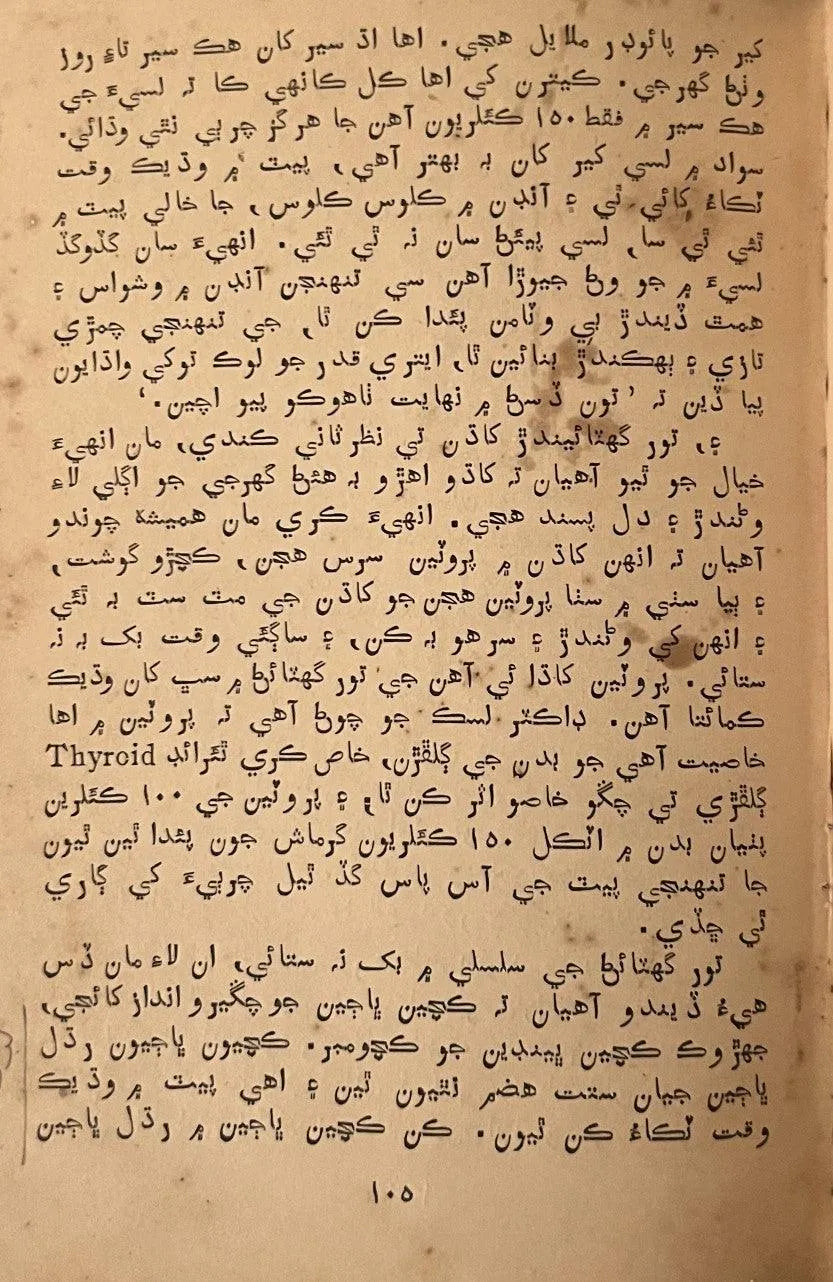 کير جو پائوڊر ملايل هجي. اها اڌ سير کان هڪ سير تاءِ روز
وٺڻ گهرجي. ڪيترن کي اها ڪل ڪانهي ڪا تہ لسيءَ جي
هڪ سير ۾ فقط ۱۵۰ ڪئلريون آهن جا هرگز چرٻي نٿي وڌائي.
سواد ۾ لسي کير کان بہ بهتر آهي، پيٽ ۾ وڌيڪ وقت
ٽڪاءُ کائي ٿي ۽ آنڊن ۾ ڪلوس ڪلوس، جا خالي پيٽ ۾
ٿئي ٿي سا، لسي پيئڻ سان نہ ٿي ٿئي. انهيءَ سان گڏوگڏ
لسيءَ ۾ جو وڻ جيوڙا آهن سي تنهنجن آنڊن ۾ وشواس ۽
همٿ ڏيندڙ بي وٽامن پئدا ڪن ٿا، جي تنهنجي چمڙي
تازي ۽ ٻهڪندڙ بنائين ٿا، ايتري قدر جو لوڪ توکي واڌايون
پيا ڏين تہ ’تون ڏسڻ ۾ نهايت ٺاهوڪو پيو اچين.‘
۽، تور گهٽائيندڙ کاڌن تي نظرثاني ڪندي، مان انهيءَ
خيال جو ٿيو آهيان تہ کاڌو اهڙو بہ هئڻ گهرجي جو اڳلي لاءِ
وڻندڙ ۽ دل پسند هجي. انهيءَ ڪري مان هميشه چوندو
آهيان تہ انهن کاڌن ۾ پروٽين سرس هجن، ڪچڙو گوشت،
۽ ٻيا سٺي ۾ سٺا پروٽين هجن جو کاڌن جي مٽ سٽ بہ ٿئي
۽ انهن کي وڻندڙ ۽ سرهو بہ ڪن، ۽ ساڳئي وقت بک بہ نہ
ستائي. پروٽين کاڌا ئي آهن جي تور گهٽائڻ ۾ سڀ کان وڌيڪ
ڪمائتا آهن. ڊاڪٽر لسڪ جو چوڻ آهي تہ پروٽين ۾ اها
خاصيت آهي جو بدن جي ڳلڦڙن، خاص ڪري ٿئرائڊ Thyroid
ڳلڦڙي تي چڱو خاصو اثر ڪن ٿا، ۽ پروٽين جي ۱۰۰ ڪئلرين
پٺيان بدن ۾ اٽڪل ۱۵۰ ڪئلريون گرماش جون پئدا ٿين ٿيون
جا تنهنجي پيٽ جي آس پاس گڏ ٿيل چرٻيءَ کي ڳاري
ٿي ڇڏي.
تور گهٽائڻ جي سلسلي ۾ بک نہ ستائي، ان لاءِ مان ڏس
هيءُ ڏيندو آهيان تہ ڪچين ڀاڄين جو چڱيرو انداز کائجي،
جهڙوڪ ڪچين ڀينڊين جو ڪچومبر. ڪچيون ڀاڄيون رڌل
ڀاڄين جيان سٽت هضم نٿيون ٿين ۽ اهي پيٽ ۾ وڌيڪ
وقت ٽڪاءُ ڪن ٿيون. ڪن ڪچين ڀاڄين ۾ رڌل ڀاڄين
۱۰۵